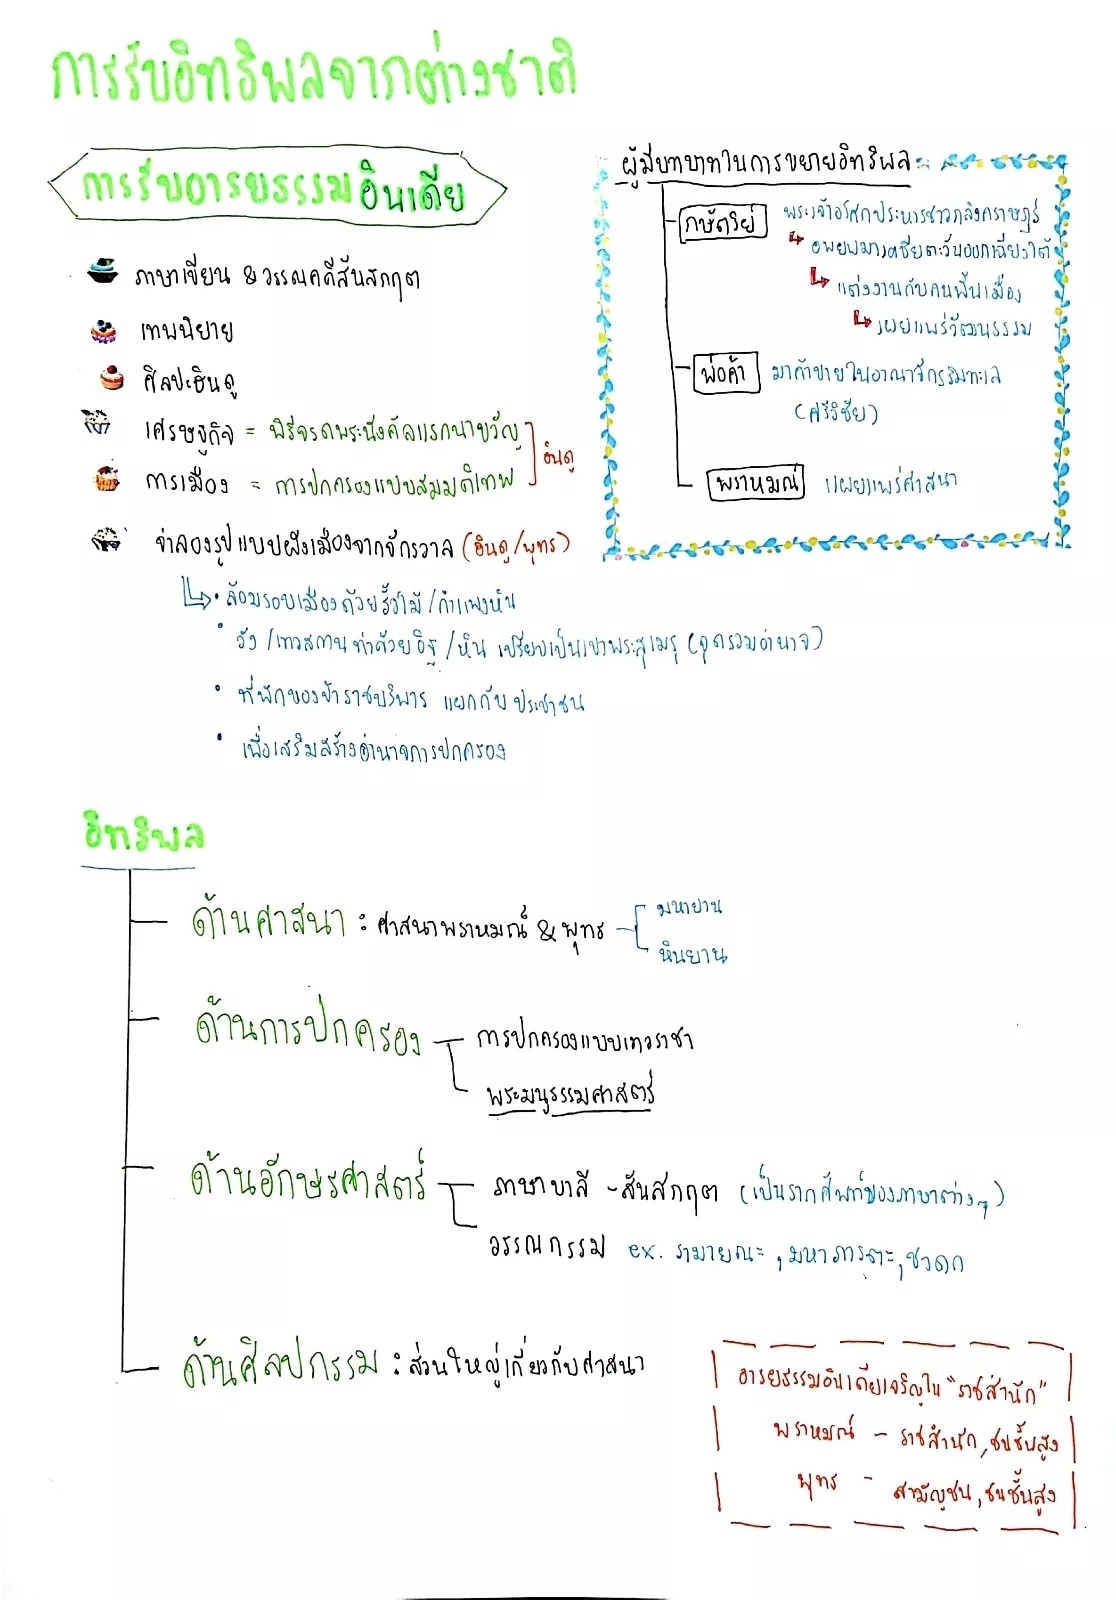 การรับอิทธิพลจากต่างชาติ
การรับอารยธรรมอินเดีย
ภาษาเขียน & วรรณคดีสันสกฤต
เทพนิยาย
ศิลปะฮินดู
เศรษฐกิจ = พิธีจรดพระนังคัลแรกนาขวัญ
การเมือง = การปกครองแบบสมมติเทพ
ฮินดู
จำลองรูปแบบผังเมืองจากจักรวาล (ฮินดู/พุทธ)
• ล้อมรอบเมืองด้วยรั้วไม้/กำแพงหิน
• วัง/เทวสถานทำด้วยอิฐ/หิน เปรียบเป็นเขาพระสุเมรุ (จุดรวมอำนาจ)
• ที่พักของข้าราชบริพาร แยกกับ ประชาชน
• เพื่อเสริมสร้างอำนาจการปกครอง
ผู้มีบทบาทในการขยายอิทธิพล
กษัตริย์ พระเจ้าอโศกประหารชาวกลิงคราษฎร์
อพยพมาเอเชียตะวันออกเฉียงใต้
แต่งงานกับคนพื้นเมือง
เผยแพร่วัฒนธรรม
พ่อค้า มาค้าขายในอาณาจักรริมทะเล
(ศรีวิชัย)
พราหมณ์ เผยแพร่ศาสนา
อิทธิพล
ด้านศาสนา : ศาสนาพราหมณ์ & พุทธ
มหายาน
หินยาน
ด้านการปกครอง
การปกครองแบบเทวราชา
พระมนูธรรมศาสตร์
ด้านอักษรศาสตร์
ภาษาบาลี - สันสกฤต (เป็นรากศัพท์ของภาษาต่างๆ)
วรรณกรรม ex. รามายณะ, มหาภารตะ, ชาดก
ด้านศิลปกรรม : ส่วนใหญ่เกี่ยวกับศาสนา
อารยธรรมอินเดียเจริญใน "ราชสำนัก"
พราหมณ์ - ราชสำนัก, ชนชั้นสูง
พุทธ - สามัญชน, ชนชั้นสูง